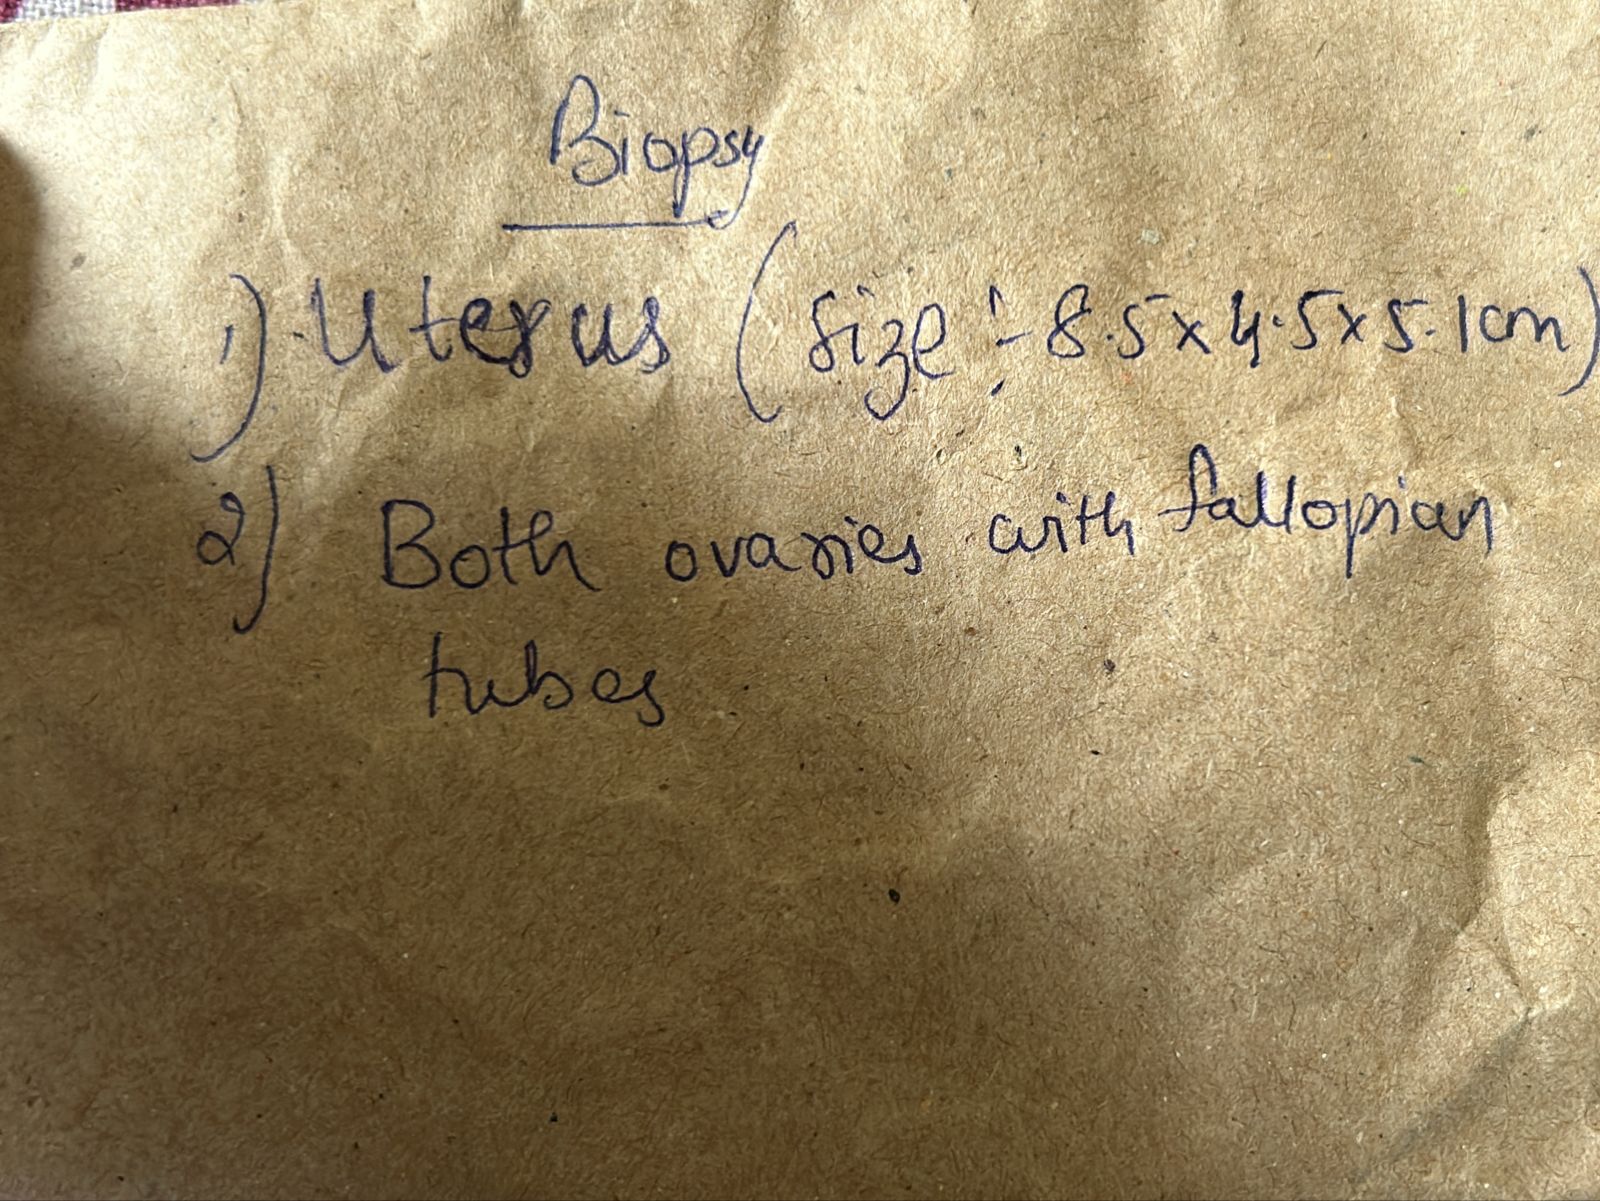 Biopsy
1) Uterus (size :- 8.5x4.5x5.1cm)
2) Both ovaries with fallopian
tubes